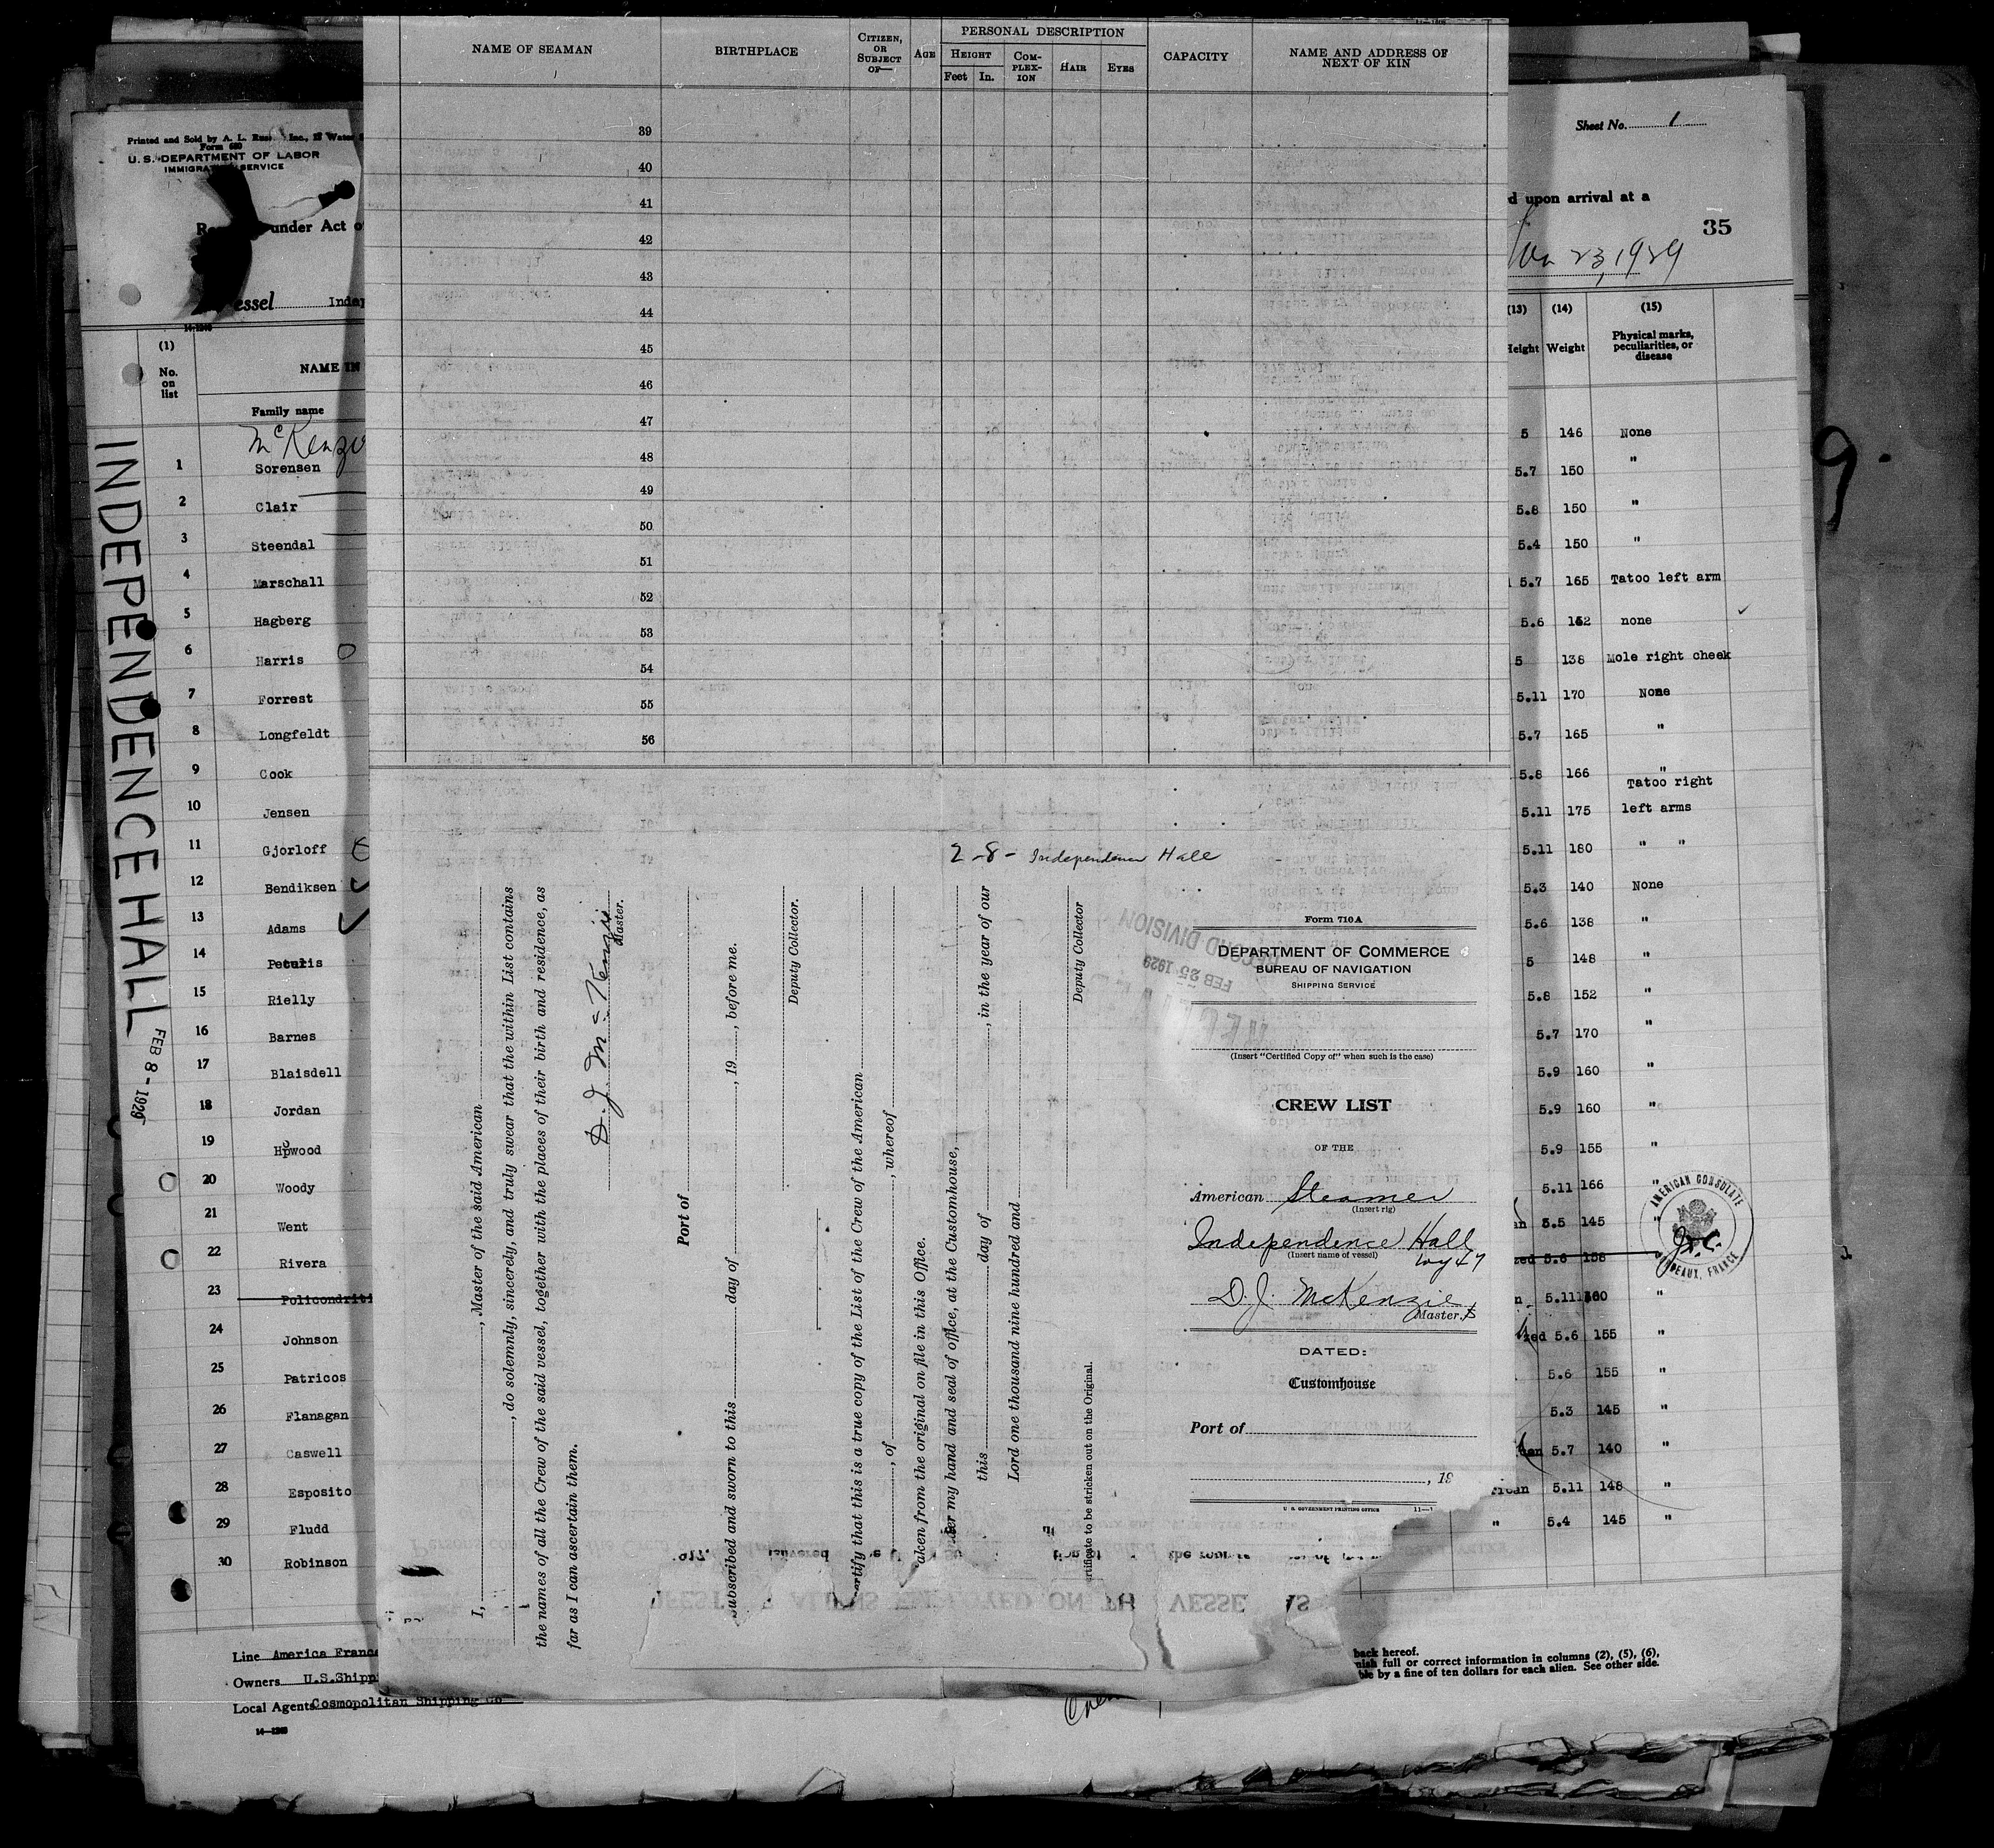 NAME OF SEAMAN
BIRTHPLACE
CITIZEN, OR SUBJECT OF—
AGE
PERSONAL DESCRIPTION
HEIGHT
Feet In.
COM-PLEX-ION
HAIR
EYES
CAPACITY
NAME AND ADDRESS OF NEXT OF KIN
39
40
41
42
43
44
45
46
47
48
49
50
51
52
53
54
55
56
Printed and Sold by A. L.
Form 680
U. S. DEPARTMENT OF LABOR
IMMIGRATION SERVICE
under Act
essel
(1)
No. on list
NAME IN
Family name
McKenzie
1 Sorensen
2 Clair
3 Steendal
4 Marschall
5 Hagberg
6 Harris
7 Forrest
8 Longfeldt
9 Cook
10 Jensen
11 Gjorloff
12 Bendiksen
13 Adams
14
15 Rielly
16 Barnes
17 Blaisdell
18 Jordan
19
20 Woody
21 Went
22 Rivera
23 Policondriti
24 Johnson
25 Patricos
26 Flanagan
27 Caswell
28 Esposito
29 Fludd
30 Robinson
INDEPENDENCE HALL
FEB 8 - 1929
Line America France
Owners U.S.Shipp
Local Agents Cosmopolitan Shipping Co
Sheet No. 1
upon arrival at a
35
23, 1929
(13) (14) (15)
Height Weight Physical marks, peculiarities, or disease
5 146 None
5.7 150 "
5.8 150 "
5.4 150 "
5.7 165 Tatoo left arm
5.6 none
5 138 Mole right cheek
5.11 170 None
5.7 165 "
5.8 166 "
Tatoo right
5.11 175 left arms
5.11 180 " "
5.3 140 None
5.6 138 "
5 148 "
5.8 152 "
5.7 170 "
5.9 160 "
5.9 160 "
5.9 155 "
5.11 166 "
5.5 145 "
5.6 158 "
5.11 "
5.6 155 "
5.6 155 "
5.3 145 "
5.7 140 "
5.11 148 "
" 5.4 145 "
AMERICAN CONSULATE
BORDEAUX, FRANCE
back hereof.
full or correct information in columns (2), (5), (6),
by a fine of ten dollars for each alien. See other side.
2-8- Independence Hall
I, , Master of the said American
, do solemnly, sincerely, and truly swear that the within List contains
the names of all the Crew of the said vessel, together with the places of their birth and residence, as
far as I can ascertain them.
D. J. McKenzie
Master.
Port of
subscribed and sworn to this day of , 19 , before me.
Deputy Collector.
certify that this is a true copy of the List of the Crew of the American
, of , whereof
taken from the original on file in this Office.
under my hand and seal of office, at the Customhouse,
this day of , in the year of our
Lord one thousand nine hundred and
Deputy Collector
Certificate to be stricken out on the Original.
RECORD DIVISION
FEB 25 1929
Form 710A
DEPARTMENT OF COMMERCE
BUREAU OF NAVIGATION
SHIPPING SERVICE
(Insert "Certified Copy of" when such is the case)
CREW LIST
OF THE
American Steamer
(Insert rig)
Independence Hall
(Insert name of vessel)
D. J. McKenzie
Master.
DATED:
Customhouse
Port of
, 19
U. S. GOVERNMENT PRINTING OFFICE